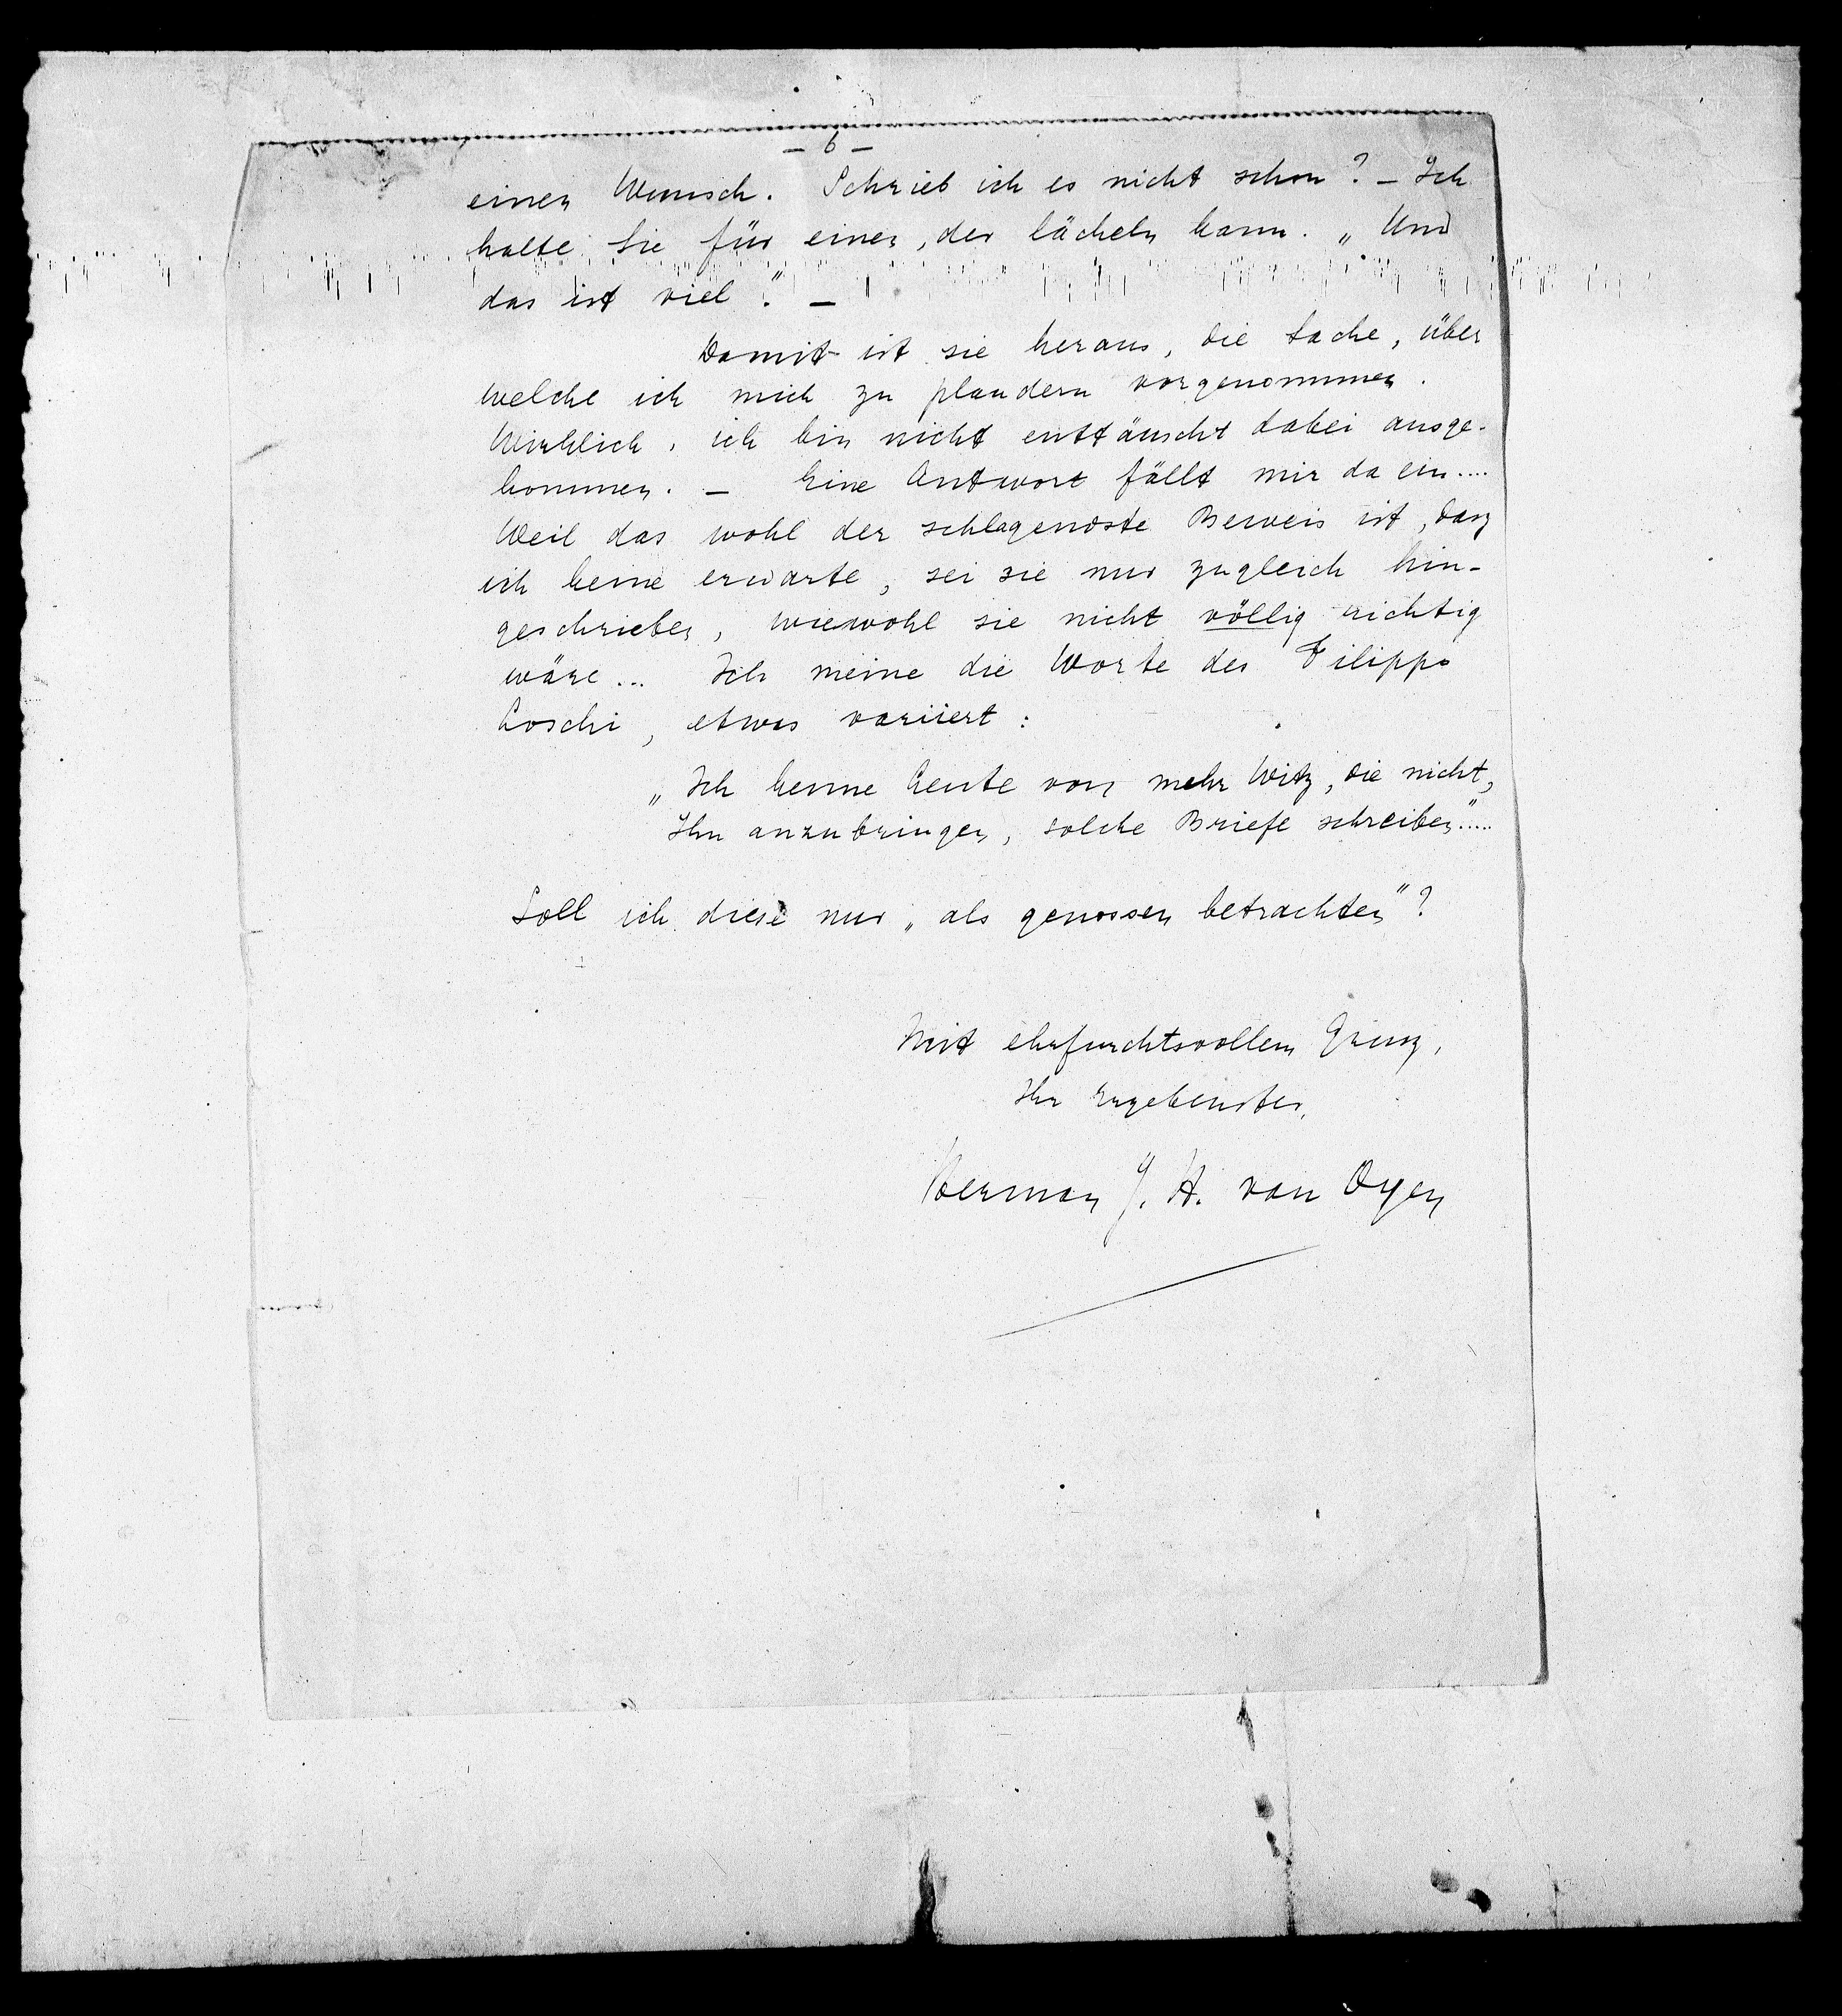 - 6 -
einen Wunsch. Schrieb ich es nicht schon? – Ich
halte Sie für einen, der lächeln kann. „Und
das ist viel." –
Damit ist sie heraus, die Sache, über
welche ich mich zu plaudern vorgenommen.
Wirklich, ich bin nicht enttäuscht dabei ausge-
kommen. – Eine Antwort fällt mir da ein....
Weil das wohl der schlagendste Beweis ist, dasz
ich keine erwarte, sei sie nur zugleich hin-
geschrieben, wiewohl sie nicht völlig richtig
wäre... Ich meine die Worte des Filippo
Loschi, etwas variiert:
„Ich kenne Leute von mehr Witz, die nicht,
Ihn anzubringen, solche Briefe schreiben".....
Soll ich diese nur „als genossen betrachten"?
Mit ehrfurchtsvollem Grusz,
Ihr Ergebenster,
Herman J. H. van Oyen